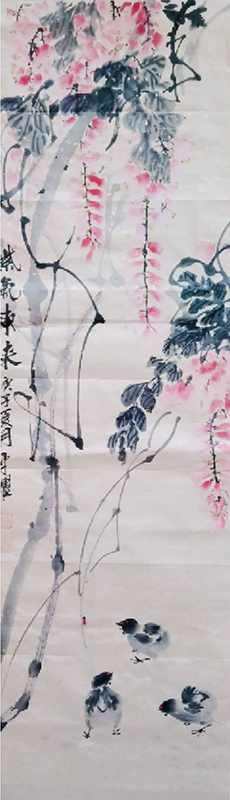 紫氣東來戊子夏月